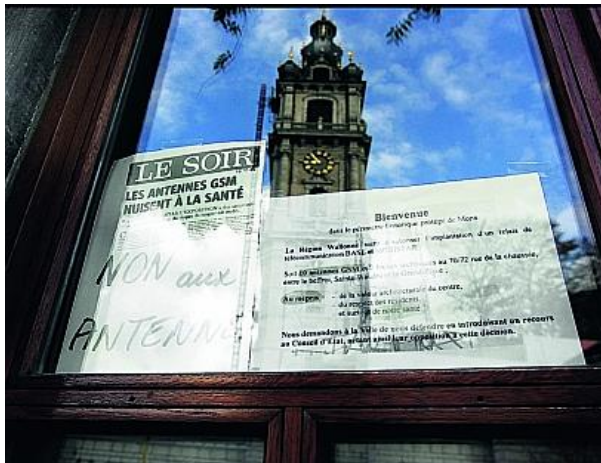 LE SOIR
LES ANTENNES GSM
NUISENT À LA SANTÉ
NON aux
ANTENN
Bienvenue
dans le périmètre historique protégé de Mons
La Région Wallonne vient d'autoriser l'implantation d'un relais de
télécommunication BASE et
Soit 09 antennes GSM et au 70/72 rue de la chaussée,
entre le beffroi, Sainte-Waudru et
Au mépris - de la valeur architecturale du centre,
- du respect des résidents
- et surtout de notre santé
Nous demandons à la Ville de nous défendre en introduisant un recours
au Conseil d'Etat, actant ainsi leur opposition à cette décision.